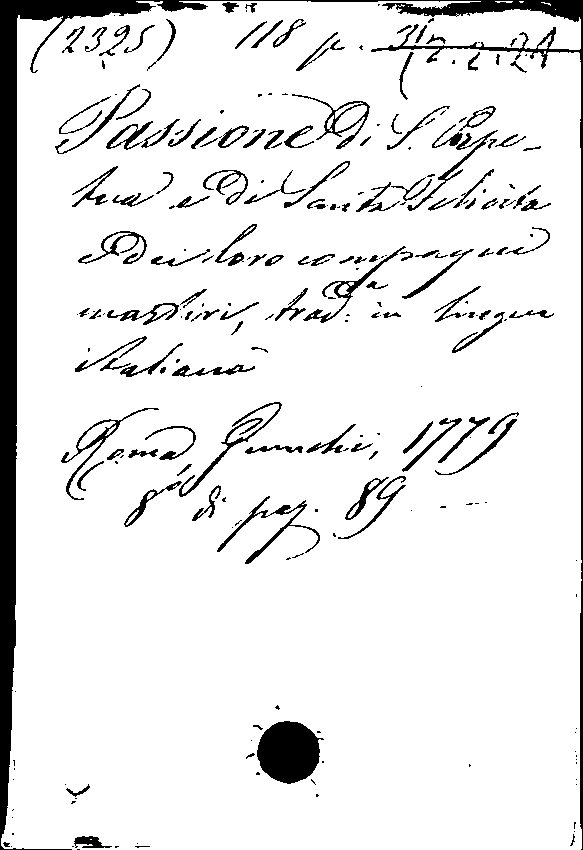 (2325) 118 p. 31
2.2.21
Passione di S. Perpe-
tua e di Santa Felicita
e dei loro compagni
martiri, trad.a in lingua
italiana
Roma, 1779
8° di pag. 89